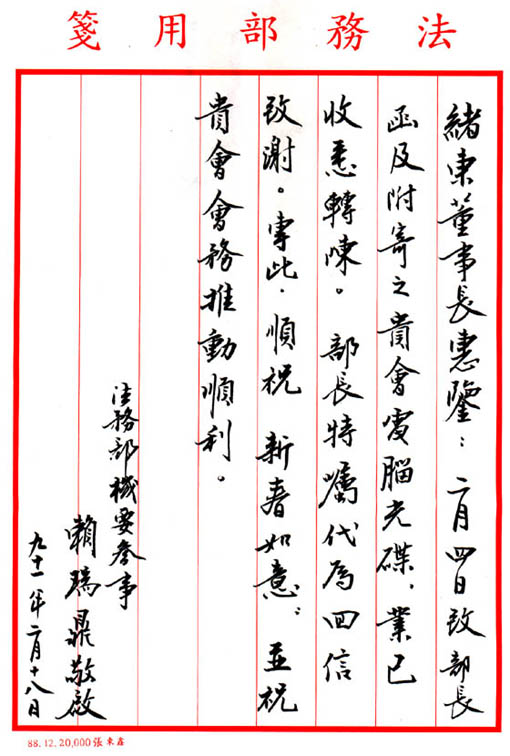 法務部用箋
緒東董事長惠鑒：二月四日致部長
函及附寄之貴會電腦光碟，業已
收悉轉陳。部長特囑代為回信
致謝。專此．順祝 新春如意；並祝
貴會會務推動順利。
法務部機要參事
賴瑞鼎敬啟
九十一年二月十八日
88.12.20,000張東鑫